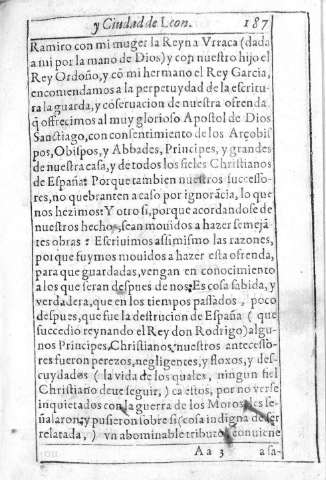 y Ciudad de Leon. 187
Ramiro con mi muger la Reyna Vrraca (dada
a mi por la mano de Dios) y con nuestro hijo el
Rey Ordoño, y cõ mi hermano el Rey Garcia,
encomendamos a la perpetuydad de la escritu-
ra la guarda, y cõseruacion de nuestra ofrenda
q̃ offrecimos al muy glorioso Apostol de Dios
Sanctiago, con consentimiento de los Arçobis
pos, Obispos, y Abbades, Principes, y grandes
de nuestra casa, y de todos los fieles Christianos
de España: Porque tambien nuestros successo-
res, no quebranten a caso por ignorãcia, lo que
nos hezimos: Y otro si, porque acordandose de
nuestros hechos, sean mouidos a hazer semejã-
tes obras: Escriuimos assimismo las razones,
porque fuymos mouidos a hazer esta ofrenda,
para que guardadas, vengan en conocimiento
a los que seran despues de nos: Es cosa sabida, y
verdadera, que en los tiempos passados, poco
despues, que fue la destrucion de España (que
succedio reynando el Rey don Rodrigo) algu-
nos Principes, Christianos, nuestros antecesso-
res fueron perezos, negligentes, y floxos, y des-
cuydados (la vida de los quales, ningun fiel
Christiano deue seguir,) ca estos, por no verse
inquietados con la guerra de los Moros, les se-
ñalaron, y pusieron sobre si (cosa indigna de ser
relatada,) vn abominable tributo, conuiene
Aa 3 a sa-